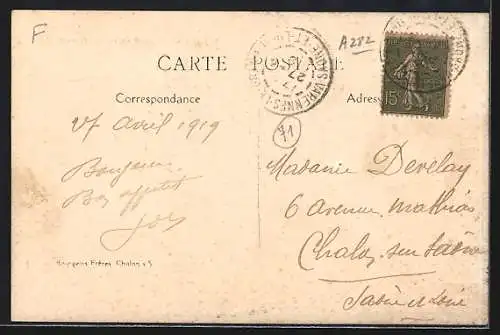 F
A282
CARTE POSTALE
Correspondance
Adresse
15
avril 1919
Bonjour
Bon appétit
Madame Develay
6 Avenue Mathias
Chalon sur Saône
Saône et Loire
Bourgeois Frères, Chalon s S